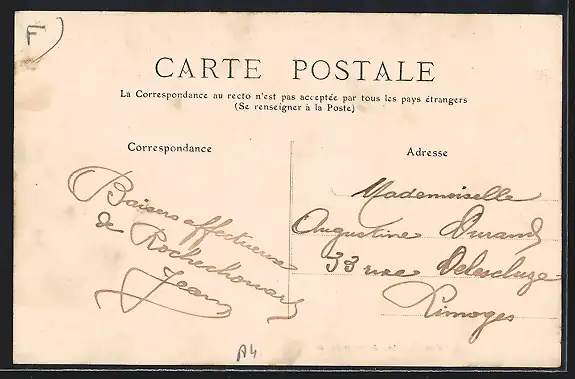 F
CARTE POSTALE
La Correspondance au recto n'est pas acceptée par tous les pays étrangers
(Se renseigner à la Poste)
Correspondance
Adresse
Baisers affectueux
de Rochechouart
Jean
Mademoiselle
Augustine Durand
33 rue Delescluze
Limoges
A4